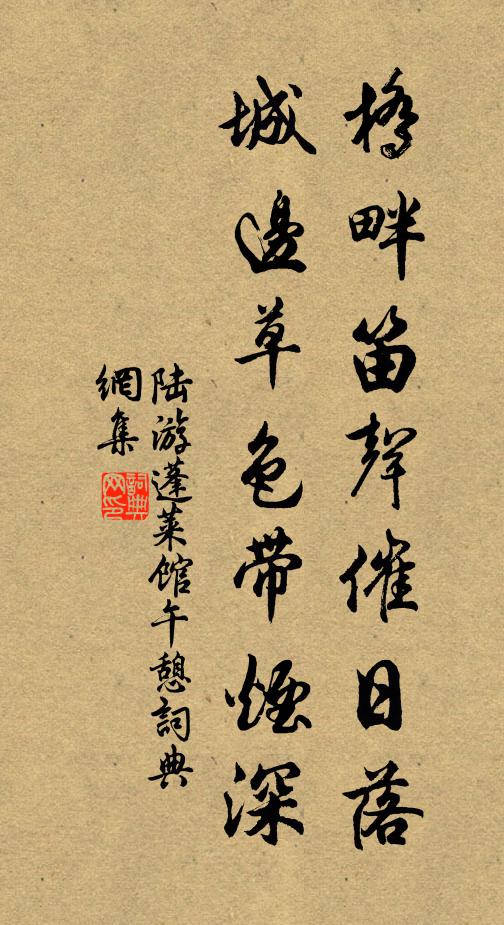 橋畔笛聲催日落
城邊草色帶煙深
陆游蓬莱馆午憩詞典
網集
詞典
网印